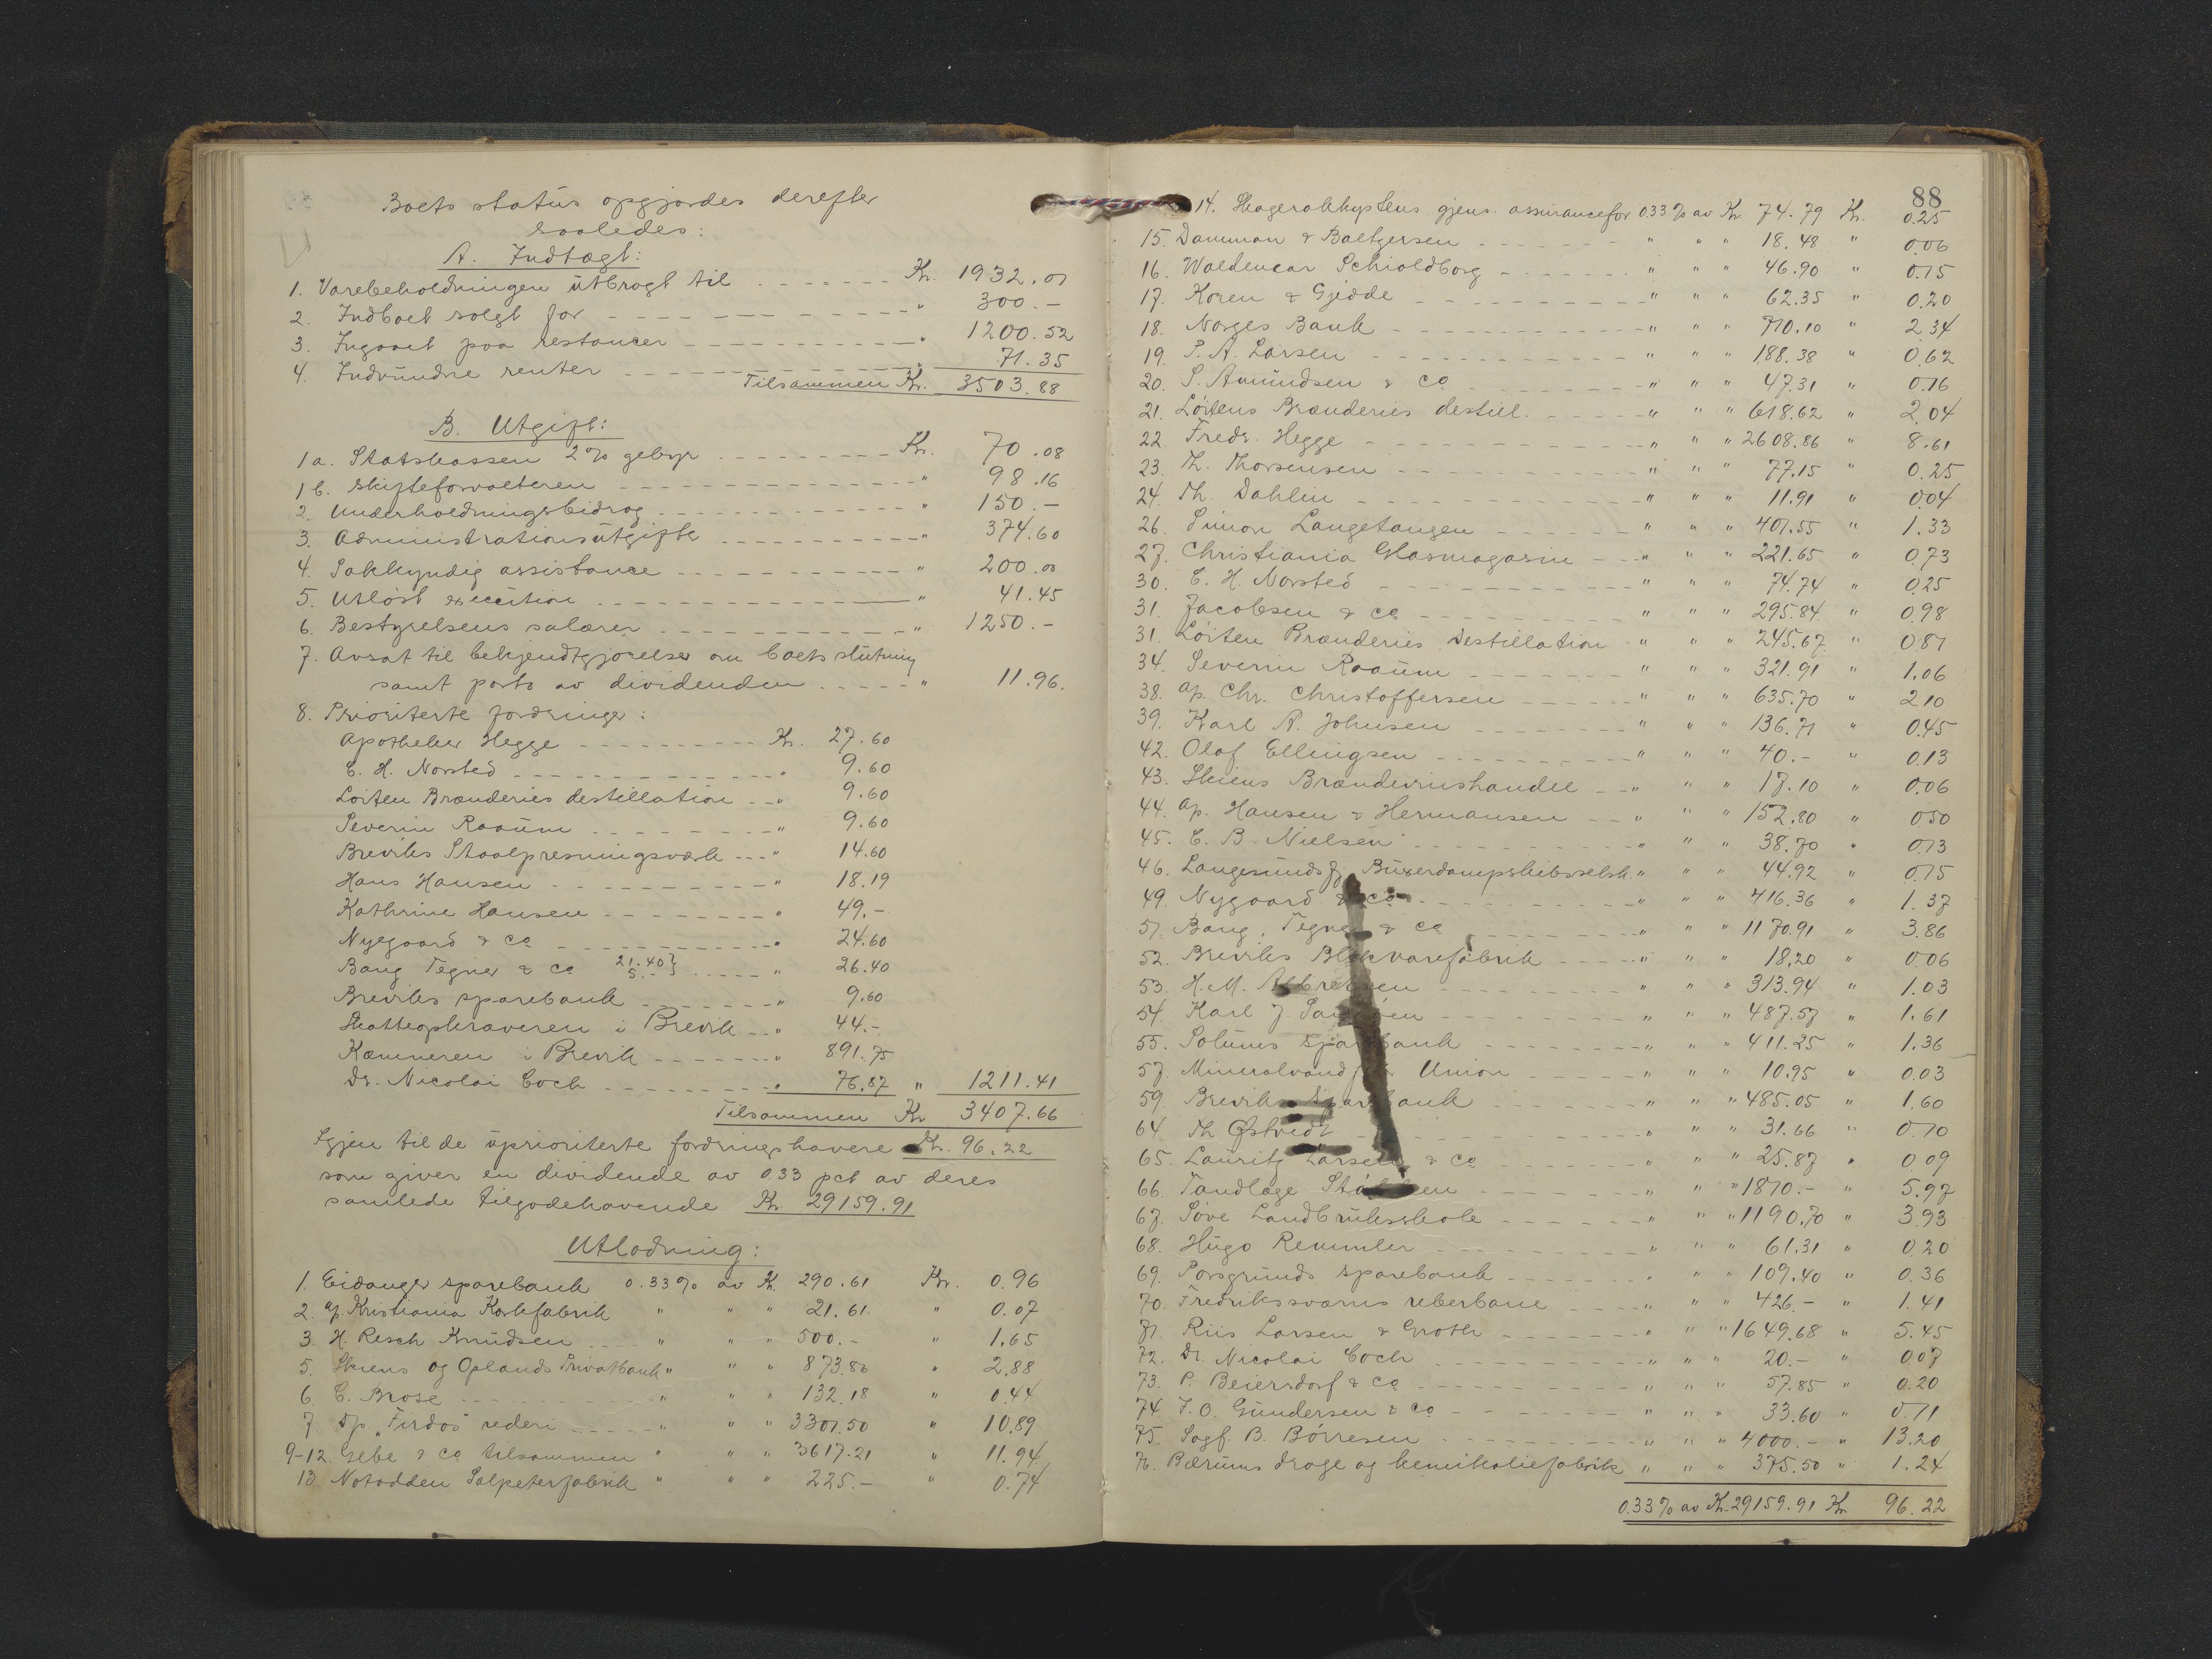 Boets status opgjordes derefter
saaledes:
A. Indtægt:
1. Varebeholdningen utbragt til Kr. 1932.01
2. Indboet solgt for " 300.-
3. Ingaaet paa restancer " 1200.52
4. Indvundne renter " 71.35
Tilsammen Kr. 3503.88
B. Utgift:
1a. Statskassen 2% gebyr Kr. 70.08
1b. Skifteforvalteren " 98.16
2. Underholdningsbidrag " 150.-
3. Administrationsutgifter " 374.60
4. Sakkyndig assistance " 200.00
5. Utløst execution " 41.45
6. Bestyrelsens salærer " 1250.-
7. Avsat til bekjendtgjørelse om boets slutning
samt porto av dividenden " 11.96.
8. Prioriterte fordringer:
Apotheker Hegge Kr. 27.60
C. H. Norsted " 9.60
Løiten Brænderies destillation " 9.60
Severin Raaum " 9.60
Breviks Staalpresningsværk " 14.60
Hans Hansen " 18.19
Kathrine Hansen " 49.-
Nyegaard & Co " 24.60
Bang Tegner & Co 21.40 5.- " 26.40
Breviks sparebank " 9.60
Skatteopkræveren i Brevik " 44.-
Kæmneren i Brevik " 891.75
Dr. Nicolai Coch " 76.87 " 1211.41
Tilsammen Kr 3407.66
Igjen til de uprioriterte fordringshavere Kr. 96.22
som giver en dividende av 0.33 pct av deres
samlede tilgodehavende Kr. 29159.91
Utlodning:
1. Eidanger sparebank 0.33% av Kr. 290.61 Kr. 0.96
2. Ap. Kristiania Korkfabrik " " " 21.61 " 0.07
3. H. Resch Knudsen " " " 500.- " 1.65
5. Skiens og Oplands Privatbank " " " 873.86 " 2.88
6. C. Brose " " " 132.18 " 0.44
7 Dp. "Firdos" rederi " " " 3301.50 " 10.89
9-12. Gebe & Co tilsammen " " " 3617.21 " 11.94
13. Notodden Salpeterfabrik " " " 225.- " 0.74
88
14. Skagerakkystens gjens. assurancefor 0.33% av Kr 74.79 Kr. 0.25
15. Damman & Baltzersen " " " 18.48 " 0.06
16. Waldemar Schioldborg " " " 46.90 " 0.15
17. Koren & Gjedde " " " 62.35 " 0.20
18. Norges Bank " " " 710.10 " 2.34
19. P. A. Larsen " " " 188.38 " 0.62
20. S. Amundsen & Co " " " 47.31 " 0.16
21. Løitens Brænderies destill. " " " 618.62 " 2.04
22. Fredr. Hegge " " " 2608.86 " 8.61
23. Th. Thorsensen " " " 77.15 " 0.25
24. Th. Dahlin " " " 11.91 " 0.04
26. Simon Langetangen " " " 401.55 " 1.33
27. Christiania Glasmagasin " " " 221.65 " 0.73
30. C. H. Norsted " " " 74.74 " 0.25
31. Jacobsen & Co " " " 295.84 " 0.98
31. Løiten Brænderies Destillation " " " 245.67 " 0.81
34. Severin Raaum " " " 321.91 " 1.06
38. Ap. Chr. Christoffersen " " " 635.70 " 2.10
39. Karl A. Johnsen " " " 136.71 " 0.45
42. Olaf Ellingsen " " " 40.- " 0.13
43. Skiens Brændevinshandel " " " 17.10 " 0.06
44. Ap. Hansen & Hermansen " " " 152.80 " 0.50
45. C. B. Nielsen " " " 38.70 " 0.13
46. Langesundsfj. Buxerdampskibsselsk. " " " 44.92 " 0.15
49. Nygaard & Co " " " 416.36 " 1.37
51. Bang, Tegner & Co " " " 1170.91 " 3.86
52. Breviks Blikvarefabrik " " " 18.20 " 0.06
53. H. M. Albretsen " " " 313.94 " 1.03
54. Karl J. " " " 487.57 " 1.61
55. Solums Sparebank " " " 411.25 " 1.36
57. Mineralvandf. Union " " " 10.95 " 0.03
59. Breviks Sparebank " " " 485.05 " 1.60
64. Th Østvedt " " " 31.66 " 0.10
65. Lauritz Larsen & Co " " " 25.87 " 0.09
66. Tandlæge " " " 1810.- " 5.97
67. Søve Landbruksskole " " " 1190.70 " 3.93
68. Hugo Remmler " " " 61.31 " 0.20
69. Porsgrunds Sparebank " " " 109.40 " 0.36
70. Fredriksværns reberbane " " " 426.- " 1.41
71. Riis Larsen & Groth " " " 1649.68 " 5.45
72. Dr. Nicolai Coch " " " 20.- " 0.07
73. P. Beiersdorf & Co " " " 57.85 " 0.20
74. F. O. Gundersen & Co " " " 33.60 " 0.11
75. Sagf. B. Børresen " " " 4000.- " 13.20
76. Bærums droge og kemikaliefabrik " " " 375.50 " 1.24
0.33% av Kr. 29159.91 Kr 96.22